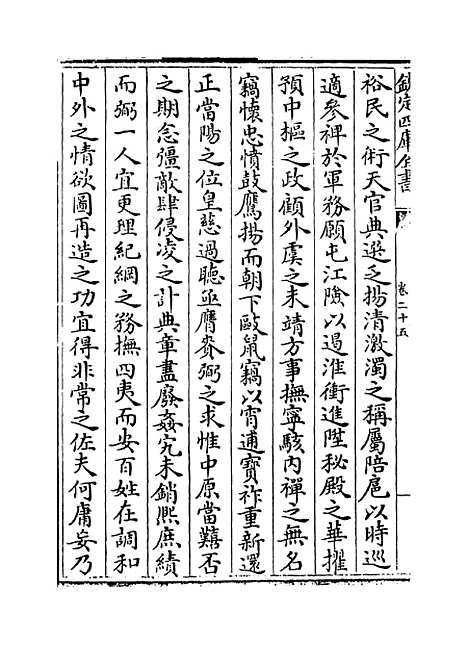 欽定四庫全書
卷二十五
裕民之術天官典選乏揚清激濁之稱屬陪扈以時巡
適參裨於軍務願屯江險以遏淮衝進陞秘殿之華擢
預中樞之政顧外虞之未靖方事撫寧駭内禪之無名
竊懷忠憤鼓鷹揚而朝下毆鼠竊以宵逋寶祚重新還
正當陽之位皇慈過聽亟膺賚弼之求惟中原當囏否
之期念彊敵肆侵凌之計典章盡廢姦宄未銷熙庶績
而弼一人宜更理紀綱之務撫四夷而安百姓在調和
中外之情欲圖再造之功宜得非常之佐夫何庸妄乃